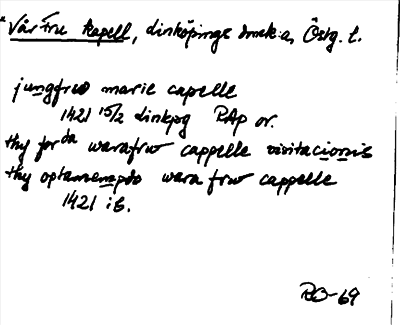 Vår Fru kapell, Linköpings domk:a, Östg. l.
jungfrw marie capelle
1421 15/2 Linkpg RAp or.
thy forda warafrw cappelle visitacionis
thy optanempda wara frw cappelle
1421 ib.
RO-69